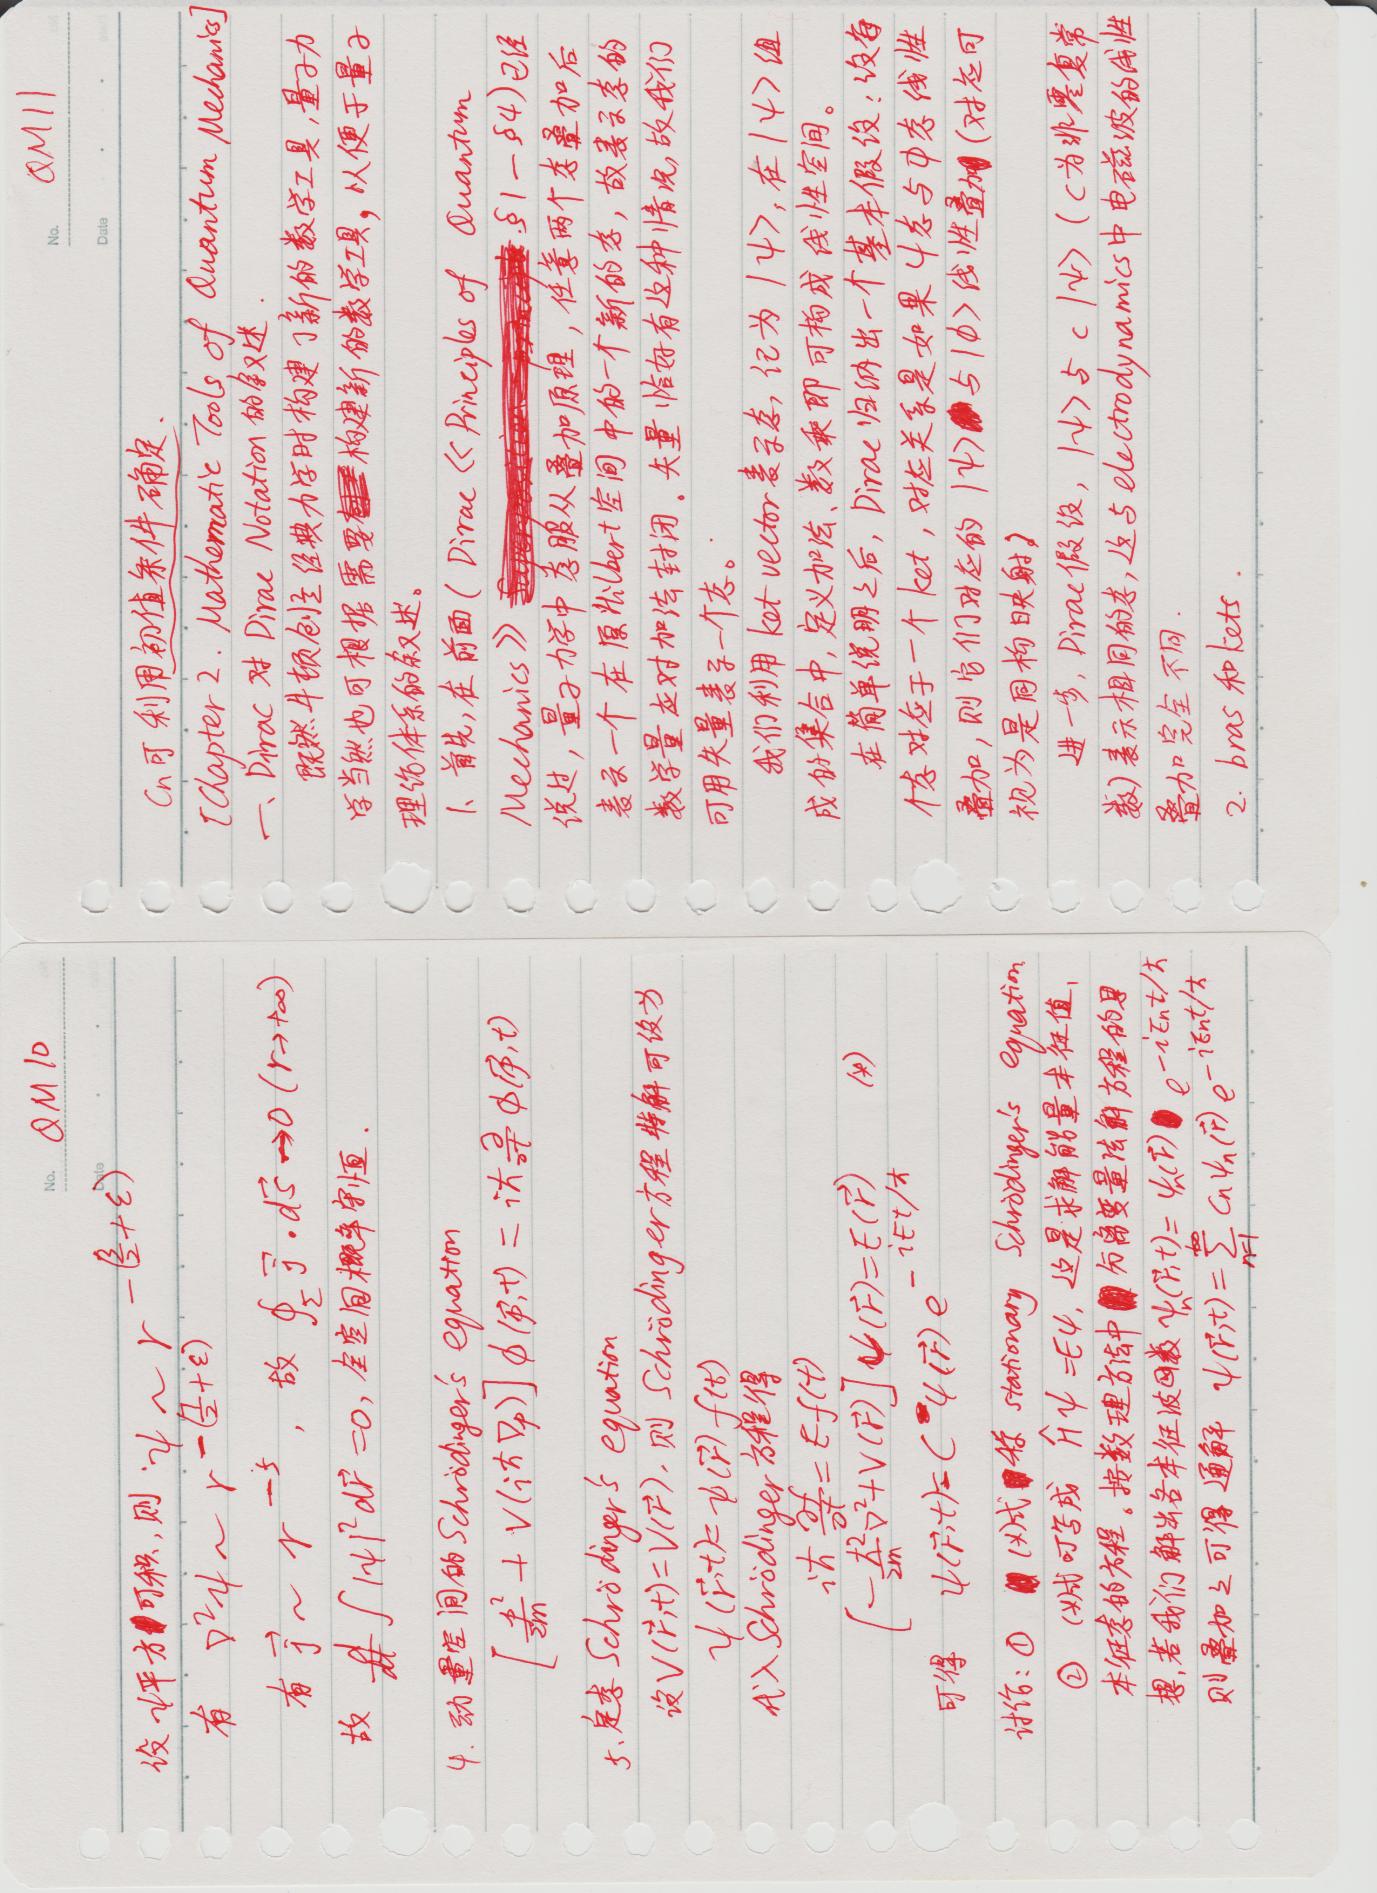 No. QM10
Date
设ψ平方可积,则 ψ ~ r^{-(3/2+ε)}
有 ∇²ψ ~ r^{-(7/2+ε)}
有 j⃗ ~ r^{-5}, 故 ∮_Σ j⃗·ds⃗→0 (r→+∞)
故 d/dt ∫|ψ|²dr⃗ =0, 全空间概率守恒.
4. 动量空间的Schrödinger's equation
[p²/2m + V(iħ∇p)] ϕ(p⃗,t) = iħ ∂/∂t ϕ(p⃗,t)
5. 定态Schrödinger's equation
设V(r⃗,t)=V(r⃗), 则 Schrödinger方程特解可设为
ψ(r⃗,t)=ψ(r⃗)f(t)
代入Schrödinger方程得
iħ ∂f/∂t = Ef(t)
[-ħ²/2m ∇²+V(r⃗)]ψ(r⃗)=E(r⃗) (*)
可得 ψ(r⃗,t)=Cψ(r⃗)e^{-iEt/ħ}
讨论: ① (*)式称 stationary Schrödinger's equation
② (*)式可写成 Ĥψ=Eψ, 这是求解能量本征值、
本征态的方程。按数理方法中分离变量法解方程的思
想,若我们解出各本征波函数 ψn(r⃗,t)=ψn(r⃗) e^{-iEnt/ħ}
则叠加之可得通解 ψ(r⃗,t)=∑_{n=1}^{+∞} Cnψn(r⃗)e^{-iEnt/ħ}
No. QM11
Date
Cn可利用初值条件确定.
[Chapter 2. Mathematic Tools of Quantum Mechanics]
一、Dirac 对 Dirac Notation 的叙述.
既然牛顿创立经典力学时构建了新的数学工具,量子力
学当然也可根据需要构建新的数学工具,以便于量子
理论体系的叙述。
1、首先,在前面(Dirac《Principles of Quantum
Mechanics》 §1—§4)已经
说过,量子力学中态服从叠加原理,任意两个态叠加后
表示一个在原Hilbert空间中的一个新的态,故表示态的
数学量应对加法封闭。矢量恰好有这种情况,故我们
可用矢量表示一个态。
我们利用ket vector表示态,记为|ψ>,在|ψ>组
成的集合中,定义加法、数乘即可构成线性空间。
在简单说明之后,Dirac归纳出一个基本假设:设每
个态对应于一个ket,对应关系是如果ψ态与ϕ态线性
叠加,则它们对应的|ψ>与|ϕ>线性叠加(对应可
视为是同构映射)
进一步,Dirac假设,|ψ>与c|ψ>(c为非零复常
数)表示相同的态,这与electrodynamics中电磁波的线性
叠加完全不同.
2. bras和kets.